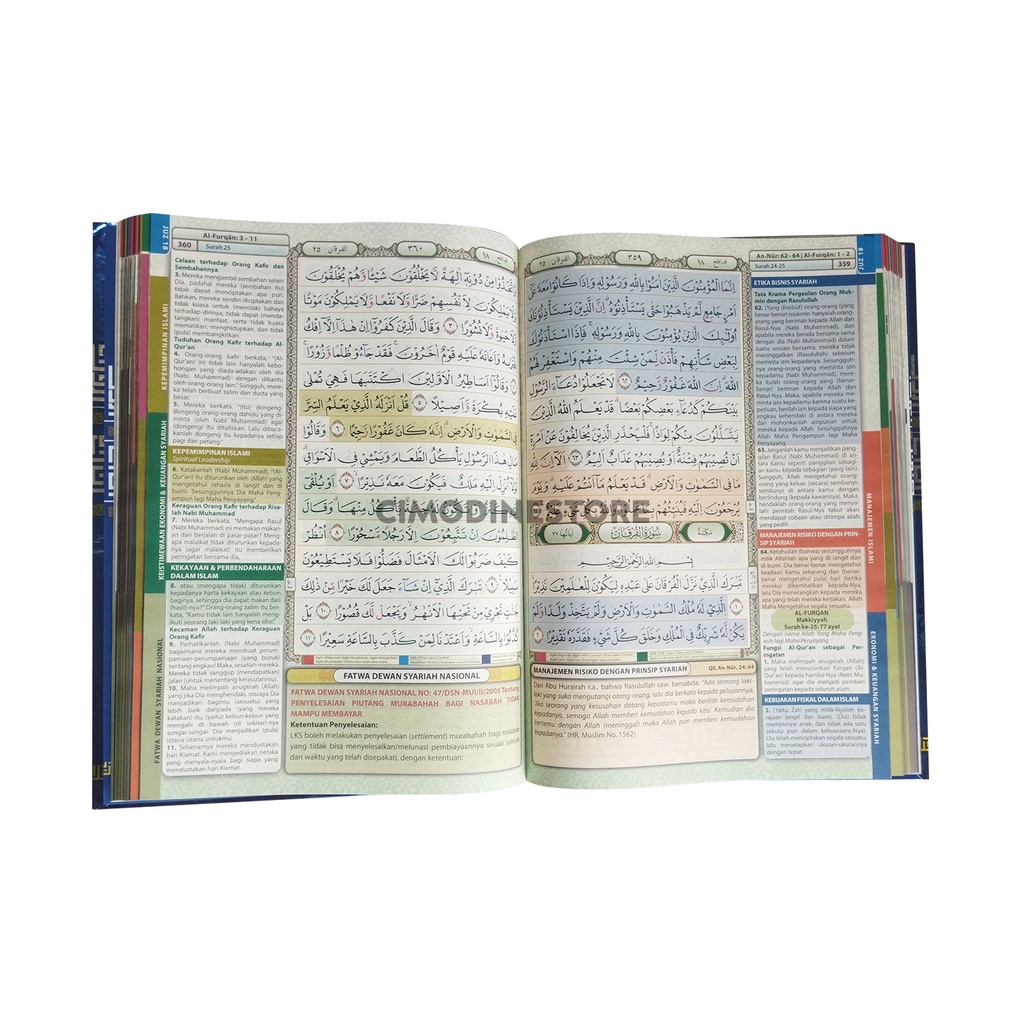 An-Nūr: 62- 64 | Al-Furqān: 1 – 2
Surah 24-25
359
JUZ 18
الفرقان ٢٥
٣٥٩
١٨
اِنَّمَا الْمُؤْمِنُوْنَ الَّذِيْنَ اٰمَنُوْا بِاللّٰهِ وَرَسُوْلِهٖ وَاِذَا كَانُوْا مَعَهٗ عَلٰٓى
اَمْرٍ جَامِعٍ لَّمْ يَذْهَبُوْا حَتّٰى يَسْتَأْذِنُوْهُۗ اِنَّ الَّذِيْنَ يَسْتَأْذِنُوْنَكَ
اُولٰۤىِٕكَ الَّذِيْنَ يُؤْمِنُوْنَ بِاللّٰهِ وَرَسُوْلِهٖۚ فَاِذَا اسْتَأْذَنُوْكَ
لِبَعْضِ شَأْنِهِمْ فَأْذَنْ لِّمَنْ شِئْتَ مِنْهُمْ وَاسْتَغْفِرْ لَهُمُ
اللّٰهَۗ اِنَّ اللّٰهَ غَفُوْرٌ رَّحِيْمٌ ٦٢ لَا تَجْعَلُوْا دُعَاۤءَ الرَّسُوْلِ
بَيْنَكُمْ كَدُعَاۤءِ بَعْضِكُمْ بَعْضًاۗ قَدْ يَعْلَمُ اللّٰهُ الَّذِيْنَ
يَتَسَلَّلُوْنَ مِنْكُمْ لِوَاذًاۚ فَلْيَحْذَرِ الَّذِيْنَ يُخَالِفُوْنَ عَنْ اَمْرِهٖٓ
اَنْ تُصِيْبَهُمْ فِتْنَةٌ اَوْ يُصِيْبَهُمْ عَذَابٌ اَلِيْمٌ ٦٣ اَلَآ اِنَّ لِلّٰهِ
مَا فِى السَّمٰوٰتِ وَالْاَرْضِۗ قَدْ يَعْلَمُ مَآ اَنْتُمْ عَلَيْهِۗ وَيَوْمَ
يُرْجَعُوْنَ اِلَيْهِ فَيُنَبِّئُهُمْ
مكية
سُوْرَةُ الْفُرْقَانِ
اٰياتها ٧٧
بِسْمِ اللّٰهِ الرَّحْمٰنِ الرَّحِيْمِ
تَبٰرَكَ الَّذِيْ نَزَّلَ الْفُرْقَانَ عَلٰى عَبْدِهٖ لِيَكُوْنَ لِلْعٰلَمِيْنَ نَذِيْرًا
١ الَّذِيْ لَهٗ مُلْكُ السَّمٰوٰتِ وَالْاَرْضِ وَلَمْ يَتَّخِذْ وَلَدًا وَّلَمْ
يَكُنْ لَّهٗ شَرِيْكٌ فِى الْمُلْكِ وَخَلَقَ كُلَّ شَيْءٍ فَقَدَّرَهٗ تَقْدِيْرًا ٢
MANAJEMEN RISIKO DENGAN PRINSIP SYARIAH
QS. An-Nūr, 24: 64
Dari Abu Hurairah r.a., bahwa Rasulullah saw. bersabda, "Ada seorang laki-
laki yang suka mengutangi orang-orang, lalu dia berkata kepada pelayannya,
'Jika seorang yang kesusahan datang kepadamu maka berilah kemudahan
kepadanya, semoga Allah memberi kemudahan kepada kita.' Kemudian dia
bertemu dengan Allah (meninggal) maka Allah pun memberi kemudahan
kepadanya." (HR. Muslim No. 1562)
ETIKA BISNIS SYARIAH
Tata Krama Pergaulan Orang Muk-
min dengan Rasulullah
62. (Yang disebut) orang-orang (yang
benar-benar) mukmin hanyalah orang-
orang yang beriman kepada Allah dan
Rasul-Nya (Nabi Muhammad), dan
apabila mereka berada bersama-sama
dengan dia (Nabi Muhammad) dalam
suatu urusan bersama, mereka tidak
meninggalkan (Rasulullah) sebelum
meminta izin kepadanya. Sesungguhnya
orang-orang yang meminta izin
kepadamu (Nabi Muhammad), mere-
ka itulah orang-orang yang (benar-
benar) beriman kepada Allah dan
Rasul-Nya. Maka, apabila mereka me-
minta izin kepadamu karena suatu ke-
perluan, berilah izin kepada siapa yang
engkau kehendaki di antara mereka
dan mohonkanlah ampunan untuk
mereka kepada Allah. Sesungguhnya
Allah Maha Pengampun lagi Maha
Penyayang.
63. Janganlah kamu menjadikan pang-
gilan Rasul (Nabi Muhammad) di an-
tara kamu seperti panggilan sebagi-
an kamu kepada sebagian (yang lain).
Sungguh, Allah mengetahui orang-
orang yang keluar (secara) sembunyi-
sembunyi di antara kamu dengan
berlindung (kepada kawannya). Maka,
hendaklah orang-orang yang menyalahi
perintah Rasul-Nya takut akan
mendapat cobaan atau ditimpa azab
yang pedih.
MANAJEMEN RISIKO DENGAN PRIN-
SIP SYARIAH
64. Ketahuilah (bahwa) sesungguhnya
milik Allahlah apa yang di langit dan
di bumi. Dia benar-benar mengetahui
keadaan kamu sekarang dan (benar-
benar mengetahui pula) hari (ketika
mereka) dikembalikan kepada-Nya,
lalu Dia menerangkan kepada mereka
apa yang telah mereka kerjakan. Allah
Maha Mengetahui segala sesuatu.
AL-FURQAN
Makkiyyah
Surah ke-25: 77 ayat
Dengan nama Allah Yang Maha Peng-
asih lagi Maha Penyayang
Fungsi Al-Qur'an sebagai Per-
ingatan
1. Maha melimpah anugerah (Allah)
yang menurunkan Furqan (Al-Qur'an)
kepada hamba-Nya (Nabi Muhammad)
agar dia menjadi pemberi
peringatan kepada seluruh alam.
KEBIJAKAN FISKAL DALAM ISLAM
2. (Yaitu Zat) yang milik-Nyalah ke-
rajaan langit dan bumi, (Dia) tidak
mempunyai anak, dan tidak ada sekutu
dalam kekuasaan(-Nya).
Dia telah menciptakan segala sesuatu,
lalu menetapkan ukuran-ukurannya
dengan tepat.
MANAJEMEN ISLAMI
EKONOMI & KEUANGAN SYARIAH
JUZ 18
360
Al-Furqān: 3 – 11
Surah 25
الفرقان ٢٥
٣٦٠
١٨
وَاتَّخَذُوْا مِنْ دُوْنِهٖٓ اٰلِهَةً لَّا يَخْلُقُوْنَ شَيْـًٔا وَّهُمْ يُخْلَقُوْنَ
وَلَا يَمْلِكُوْنَ لِاَنْفُسِهِمْ ضَرًّا وَّلَا نَفْعًا وَّلَا يَمْلِكُوْنَ مَوْتًا
وَّلَا حَيٰوةً وَّلَا نُشُوْرًا ٣ وَقَالَ الَّذِيْنَ كَفَرُوْٓا اِنْ هٰذَآ اِلَّآ اِفْكُ
افْتَرٰىهُ وَاَعَانَهٗ عَلَيْهِ قَوْمٌ اٰخَرُوْنَۚ فَقَدْ جَاۤءُوْ ظُلْمًا وَّزُوْرًاۚ
٤ وَقَالُوْٓا اَسَاطِيْرُ الْاَوَّلِيْنَ اكْتَتَبَهَا فَهِيَ تُمْلٰى
عَلَيْهِ بُكْرَةً وَّاَصِيْلًا ٥ قُلْ اَنْزَلَهُ الَّذِيْ يَعْلَمُ السِّرَّ
فِى السَّمٰوٰتِ وَالْاَرْضِۗ اِنَّهٗ كَانَ غَفُوْرًا رَّحِيْمًا ٦ وَقَالُوْا
مَالِ هٰذَا الرَّسُوْلِ يَأْكُلُ الطَّعَامَ وَيَمْشِيْ فِى الْاَسْوَاقِۗ
لَوْلَآ اُنْزِلَ اِلَيْهِ مَلَكٌ فَيَكُوْنَ مَعَهٗ نَذِيْرًا ٧ اَوْ يُلْقٰٓى
يَأْكُلُ مِنْهَاۗ وَقَالَ
الظّٰلِمُوْنَ اِنْ تَتَّبِعُوْنَ اِلَّا رَجُلًا مَّسْحُوْرًا ٨ اُنْظُرْ
كَيْفَ ضَرَبُوْا لَكَ الْاَمْثَالَ فَضَلُّوْا فَلَا يَسْتَطِيْعُوْنَ
سَبِيْلًا ٩ تَبٰرَكَ الَّذِيْٓ اِنْ شَاۤءَ جَعَلَ لَكَ خَيْرًا مِّنْ ذٰلِكَ
جَنّٰتٍ تَجْرِيْ مِنْ تَحْتِهَا الْاَنْهٰرُۙ وَيَجْعَلْ لَّكَ قُصُوْرًا ١٠ بَلْ
كَذَّبُوْا بِالسَّاعَةِ وَاَعْتَدْنَا لِمَنْ كَذَّبَ بِالسَّاعَةِ سَعِيْرًا ١١
FATWA DEWAN SYARIAH NASIONAL
FATWA DEWAN SYARIAH NASIONAL NO: 47/DSN-MUI/II/2005 Tentang
PENYELESAIAN PIUTANG MURABAHAH BAGI NASABAH TIDAK
MAMPU MEMBAYAR
Ketentuan Penyelesaian:
LKS boleh melakukan penyelesaian (settlement) murabahah bagi nasabah
yang tidak bisa menyelesaikan/melunasi pembiayaannya sesuai jumlah
dan waktu yang telah disepakati, dengan ketentuan:
Celaan terhadap Orang Kafir dan
Sembahannya
3. Mereka mengambil sembahan selain
Dia, padahal mereka (sembahan itu)
tidak dapat menciptakan apa pun.
Bahkan, mereka sendiri diciptakan dan
tidak kuasa untuk (menolak) bahaya
terhadap dirinya, tidak dapat (menda-
tangkan) manfaat, serta tidak kuasa
mematikan, menghidupkan, dan tidak
(pula) membangkitkan.
Tuduhan Orang Kafir terhadap Al-
Qur'an
4. Orang-orang kafir berkata, "(Al-
Qur'an) ini tidak lain hanyalah kebo-
hongan yang diada-adakan oleh dia
(Nabi Muhammad) dengan dibantu
oleh orang-orang lain," Sungguh, mere-
ka telah berbuat zalim dan dusta yang
besar.
5. Mereka berkata, "(Itu) dongeng-
dongeng orang-orang dahulu yang di-
minta (oleh Nabi Muhammad) agar
(dongeng) itu dituliskan. Lalu dibaca-
kanlah dongeng itu kepadanya setiap
pagi dan petang."
KEPEMIMPINAN ISLAMI
Spiritual Leadership
6. Katakanlah (Nabi Muhammad), "(Al-
Qur'an) itu diturunkan oleh (Allah) yang
mengetahui rahasia di langit dan di
bumi. Sesungguhnya Dia Maha Peng-
ampun lagi Maha Penyayang."
Keraguan Orang Kafir terhadap Risa-
lah Nabi Muhammad
7. Mereka berkata, "Mengapa Rasul
(Nabi Muhammad) ini memakan makan-
an dan berjalan di pasar-pasar? Meng-
apa malaikat tidak diturunkan kepada-
nya (agar malaikat) itu memberikan
peringatan bersama dia,
KEKAYAAN & PERBENDAHARAAN
DALAM ISLAM
8. atau (mengapa tidak) diturunkan
kepadanya harta kekayaan atau kebun
baginya, sehingga dia dapat makan dari
(hasil)-nya?" Orang-orang zalim itu ber-
kata, "Kamu tidak lain hanyalah meng-
ikuti seorang laki-laki yang kena sihir."
Kecaman Allah terhadap Keraguan
Orang Kafir
9. Perhatikanlah (Nabi Muhammad)
bagaimana mereka membuat perum-
pamaan-perumpamaan (yang buruk)
tentang engkau? Maka, sesatlah mereka.
Mereka tidak sanggup (mendapatkan)
jalan (untuk menentang kerasulanmu).
10. Maha melimpah anugerah (Allah)
yang jika Dia menghendaki, niscaya Dia
menjadikan bagimu (sesuatu) yang
lebih baik daripada (yang mereka
katakan) itu, (yaitu) kebun-kebun yang
mengalir di bawah (di sekitar)-nya
sungai-sungai dan Dia menjadikan (pula)
istana-istana untukmu.
11. Sebenarnya mereka mendustakan
hari Kiamat. Kami menyediakan neraka
yang menyala-nyala bagi siapa yang
mendustakan hari Kiamat.
KEPEMIMPINAN ISLAMI
KEISTIMEWAAN EKONOMI & KEUANGAN SYARIAH
FATWA DEWAN SYARIAH NASIONAL
CIMODINESTORE